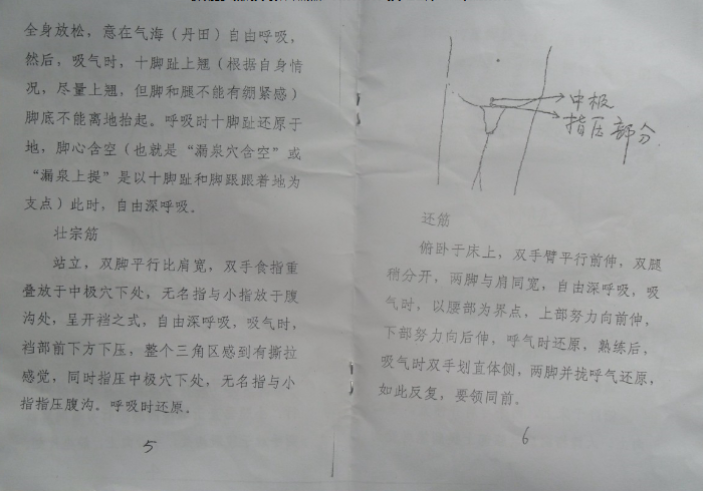 全身放松，意在气海（丹田）自由呼吸，
然后，吸气时，十脚趾上翘（根据自身情
况，尽量上翘，但脚和腿不能有绷紧感）
脚底不能离地抬起。呼吸时十脚趾还原于
地，脚心含空（也就是“涌泉穴含空”或
“涌泉上提”是以十脚趾和脚跟跟着地为
支点）此时，自由深呼吸。
壮宗筋
站立，双脚平行比肩宽，双手食指重
叠放于中极穴下处，无名指与小指放于腹
沟处，呈开裆之式，自由深呼吸，吸气时，
裆部前下方下压，整个三角区感到有撕拉
感觉，同时指压中极穴下处，无名指与小
指指压腹沟。呼吸时还原。
5
中极
指压部分
还筋
俯卧于床上，双手臂平行前伸，双腿
稍分开，两脚与肩同宽，自由深呼吸，吸
气时，以腰部为界点，上部努力向前伸，
下部努力向后伸，呼气时还原，熟练后，
吸气时双手划直体侧，两脚并拢呼气还原，
如此反复，要领同前。
6